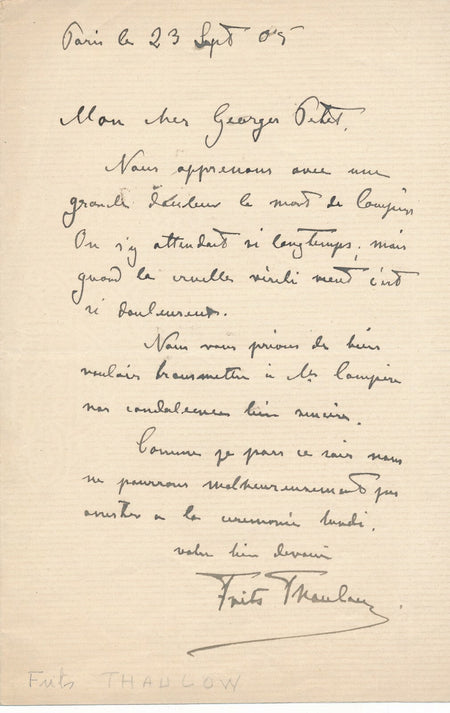 Paris le 23 Sept 05
Mon cher Georges Petit,
Nous apprenons avec une
grande douleur le mort de Compère
On s'y attendait si longtemps, mais
quand la cruelles vérili vient c'est
si douleureus.
Nous vous prions de bien
vouloir transmettre à Mr Compère
nos condoleences bien sincères.
Comme je pars ce soir nous
ne pourrons malheureusement pas
assister a la ceremonie lundi.
votre bien devoué
Frits Thaulow
Frits THAULOW